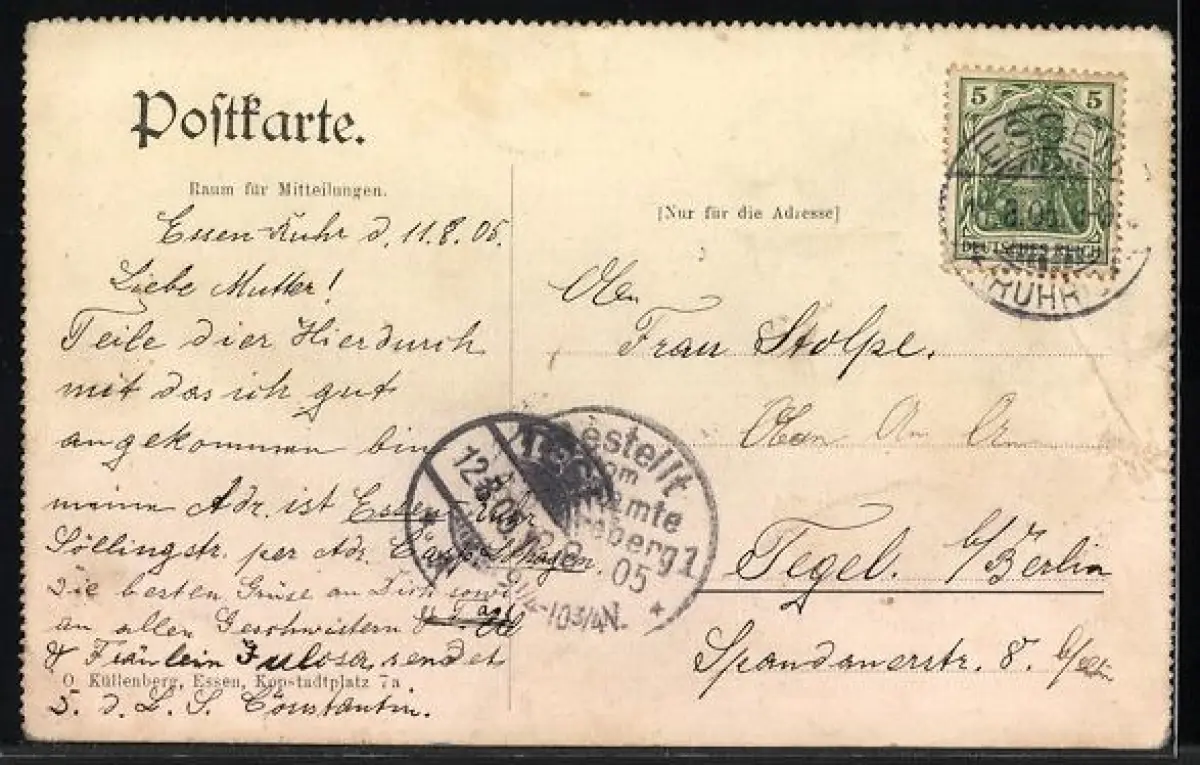 Postkarte.
Raum für Mitteilungen.
Essen-Ruhr d. 11.8.05.
Liebe Mutter!
Teile dier Hierdurch
mit das ich gut
angekommen bin
meine Adr. ist Essen Ruhr
Söllingstr. per Adr.
Die besten Grüse an Dich sowie
an allen Geschwistern
& Fräulein sendet
O Küllenberg, Essen, Kopstadtplatz 7a
S. d. L. S. Constantin.
[Nur für die Adresse]
Frau Stolpe.
Tegel. b/Berlin
Spandauerstr. 8.
5 5
DEUTSCHES REICH
ESSEN
RUHR
12.8.05
Bestellt
vom
Postamte
05
9¼-10¾N.